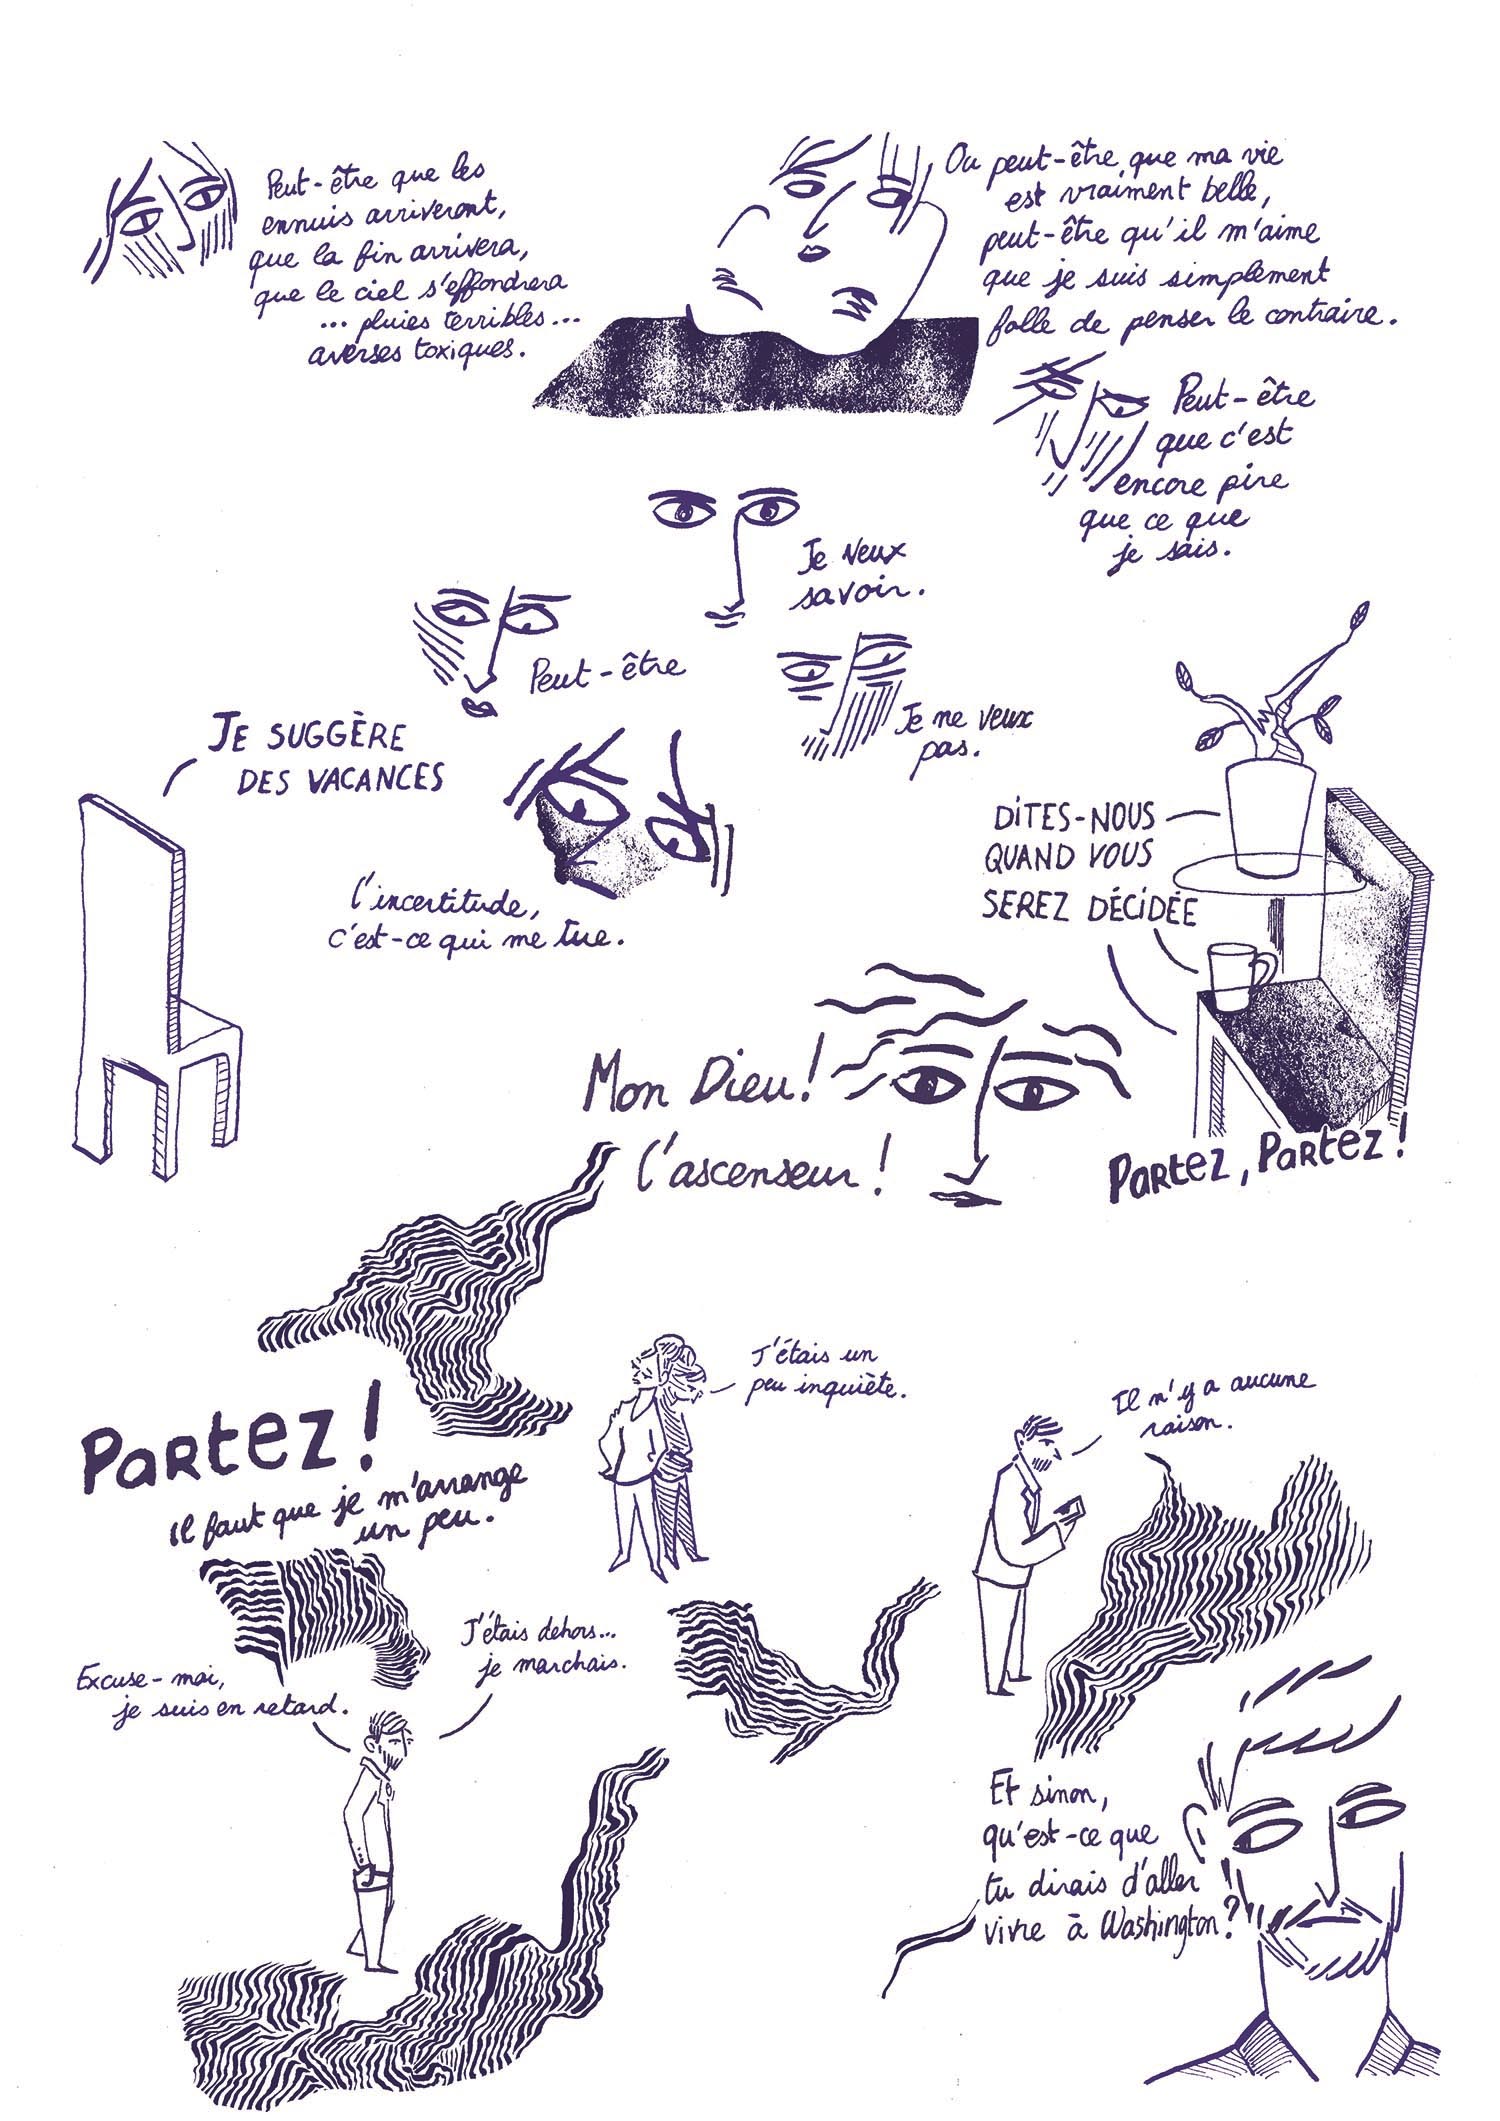 Peut-être que les
ennuis arriveront,
que la fin arrivera,
que le ciel s'effondrera
... pluies terribles...
averses toxiques.
Ou peut-être que ma vie
est vraiment belle,
peut-être qu'il m'aime
que je suis simplement
folle de penser le contraire.
Peut-être
que c'est
encore pire
que ce que
je sais.
Je veux
savoir.
Peut-être
Je ne veux
pas.
JE SUGGÈRE
DES VACANCES
l'incertitude,
c'est-ce qui me tue.
DITES-NOUS
QUAND VOUS
SEREZ DÉCIDÉE
Mon Dieu!
l'ascenseur!
Partez, Partez!
Partez!
Il faut que je m'arrange
un peu.
J'étais un
peu inquiète.
Il n'y a aucune
raison.
Excuse-moi,
je suis en retard.
J'étais dehors...
je marchais.
Et sinon,
qu'est-ce que
tu dirais d'aller
vivre à Washington?